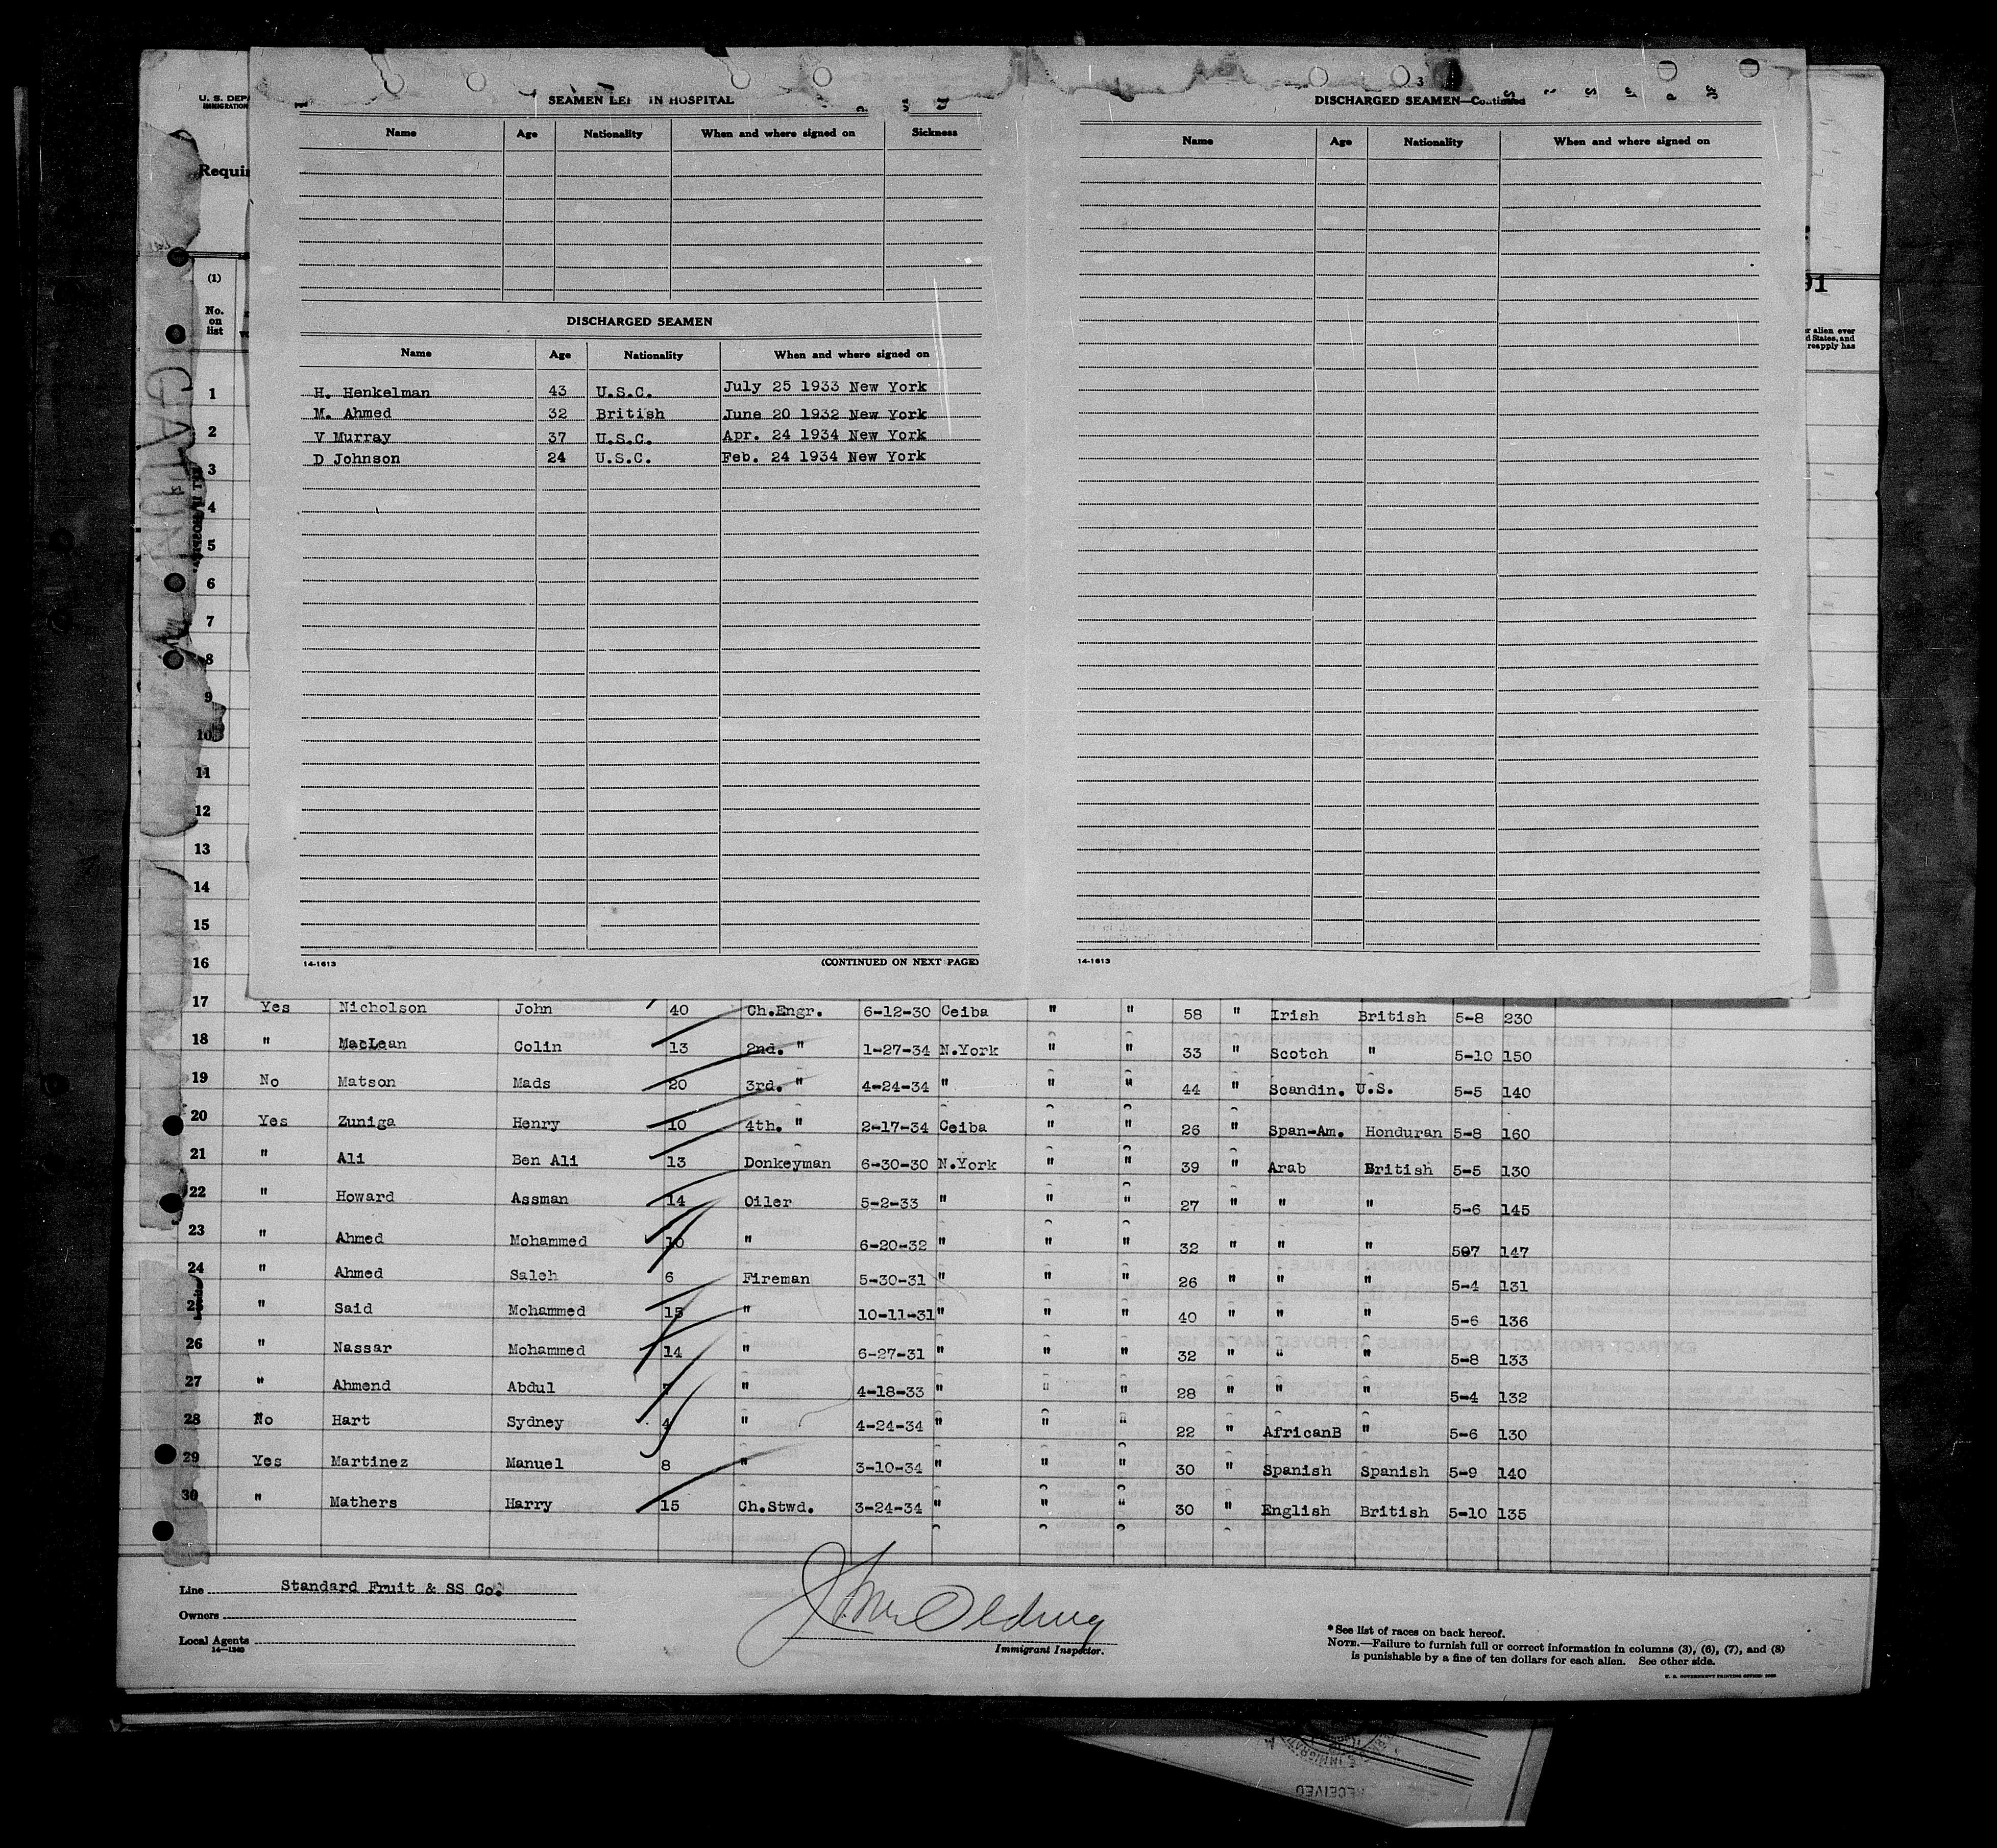 U. S. DEP
IMMIGRATION
Requir
SEAMEN LEF IN HOSPITAL
Name Age Nationality When and where signed on Sickness
DISCHARGED SEAMEN
Name Age Nationality When and where signed on
H. Henkelman 43 U.S.C. July 25 1933 New York
M. Ahmed 32 British June 20 1932 New York
V Murray 37 U.S.C. Apr. 24 1934 New York
D Johnson 24 U.S.C. Feb. 24 1934 New York
14-1613 (CONTINUED ON NEXT PAGE)
3
DISCHARGED SEAMEN—Continued
Name Age Nationality When and where signed on
14-1613
91
r alien ever
d States, and
reapply has
(1)
No.
on
list
1
2
3
4
5
6
7
8
9
10
11
12
13
14
15
16
17 Yes Nicholson John 40 Ch.Engr. 6-12-30 Ceiba " " 58 " Irish British 5-8 230
18 " MacLean Colin 13 2nd. " 1-27-34 N.York " " 33 " Scotch " 5-10 150
19 No Matson Mads 20 3rd. " 4-24-34 " " " 44 " Scandin. U.S. 5-5 140
20 Yes Zuniga Henry 10 4th. " 2-17-34 Ceiba " " 26 " Span-Am. Honduran 5-8 160
21 " Ali Ben Ali 13 Donkeyman 6-30-30 N.York " " 39 " Arab British 5-5 130
22 " Howard Assman 14 Oiler 5-2-33 " " " 27 " " " 5-6 145
23 " Ahmed Mohammed 10 " 6-20-32 " " " 32 " " " 507 147
24 " Ahmed Saleh 6 Fireman 5-30-31 " " " 26 " " " 5-4 131
25 " Said Mohammed 15 " 10-11-31 " " " 40 " " " 5-6 136
26 " Nassar Mohammed 14 " 6-27-31 " " " 32 " " " 5-8 133
27 " Ahmend Abdul 7 " 4-18-33 " " " 28 " " " 5-4 132
28 No Hart Sydney 4 " 4-24-34 " " " 22 " AfricanB " 5-6 130
29 Yes Martinez Manuel 8 " 3-10-34 " " " 30 " Spanish Spanish 5-9 140
30 " Mathers Harry 15 Ch.Stwd. 3-24-34 " " " 30 " English British 5-10 135
Line Standard Fruit & SS Co.
Owners
Local Agents
14—1240
Immigrant Inspector.
* See list of races on back hereof.
NOTE.—Failure to furnish full or correct information in columns (3), (6), (7), and (8)
is punishable by a fine of ten dollars for each alien. See other side.
U. S. GOVERNMENT PRINTING OFFICE
RECEIVED